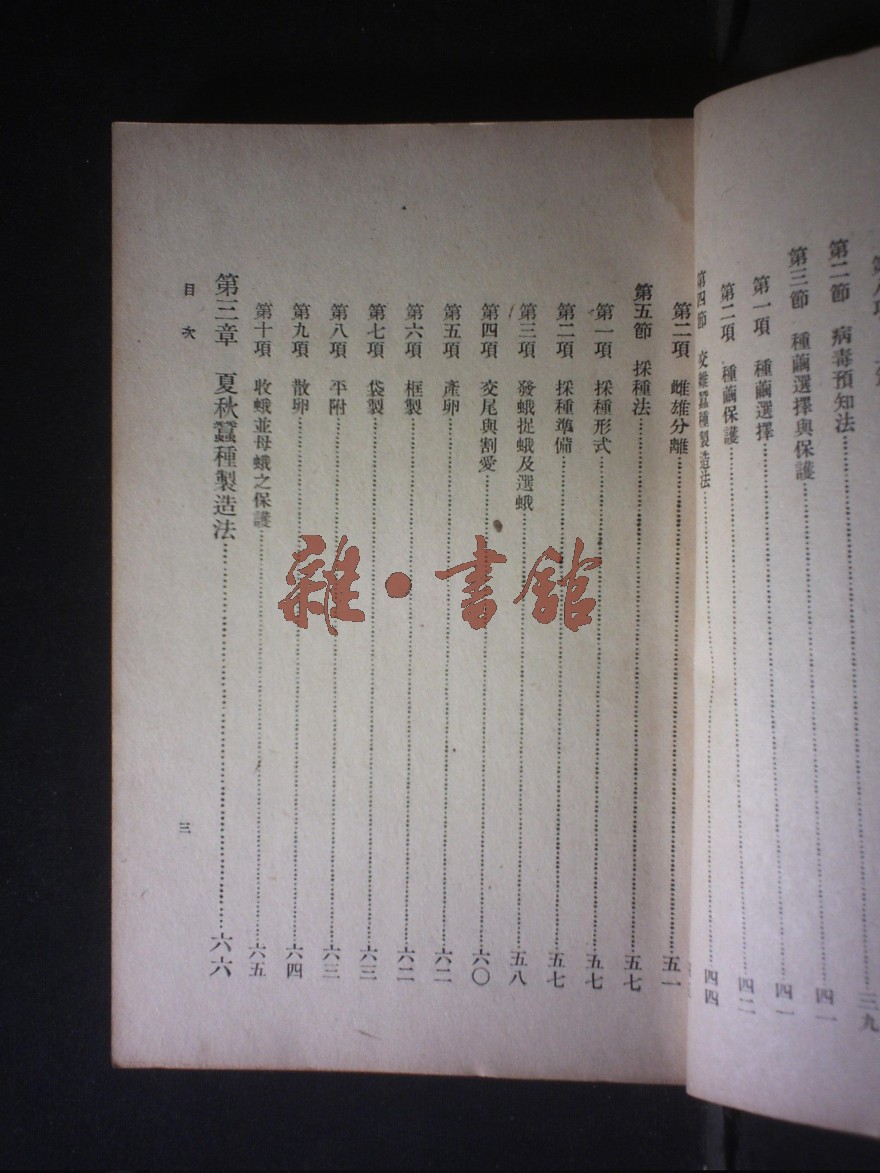 第二節 病毒預知法……三九
第三節 種繭選擇與保護……四一
第一項 種繭選擇……四一
第二項 種繭保護……四二
第四節 交雜蠶種製造法……四四
第二項 雌雄分離……五一
第五節 採種法……五七
第一項 採種形式……五七
第二項 採種準備……五七
第三項 發蛾捉蛾及選蛾……五八
第四項 交尾與割愛……六〇
第五項 產卵……六二
第六項 框製……六二
第七項 袋製……六三
第八項 平附……六三
第九項 散卵……六四
第十項 收蛾並母蛾之保護……六五
第三章 夏秋蠶種製造法……六六
目次
三
雜·書館